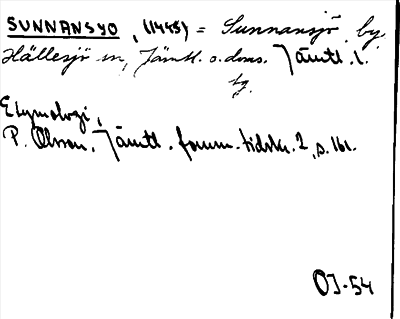 SUNNANSYO, (1445) = Sunnansjö by,
Hällesjö sn, Jämtl. o. doms. Jämtl. l.
by.
Etymologi,
P. Olsson. Jämtl. fornm. tidskr. 2, s. 161.
OJ-54